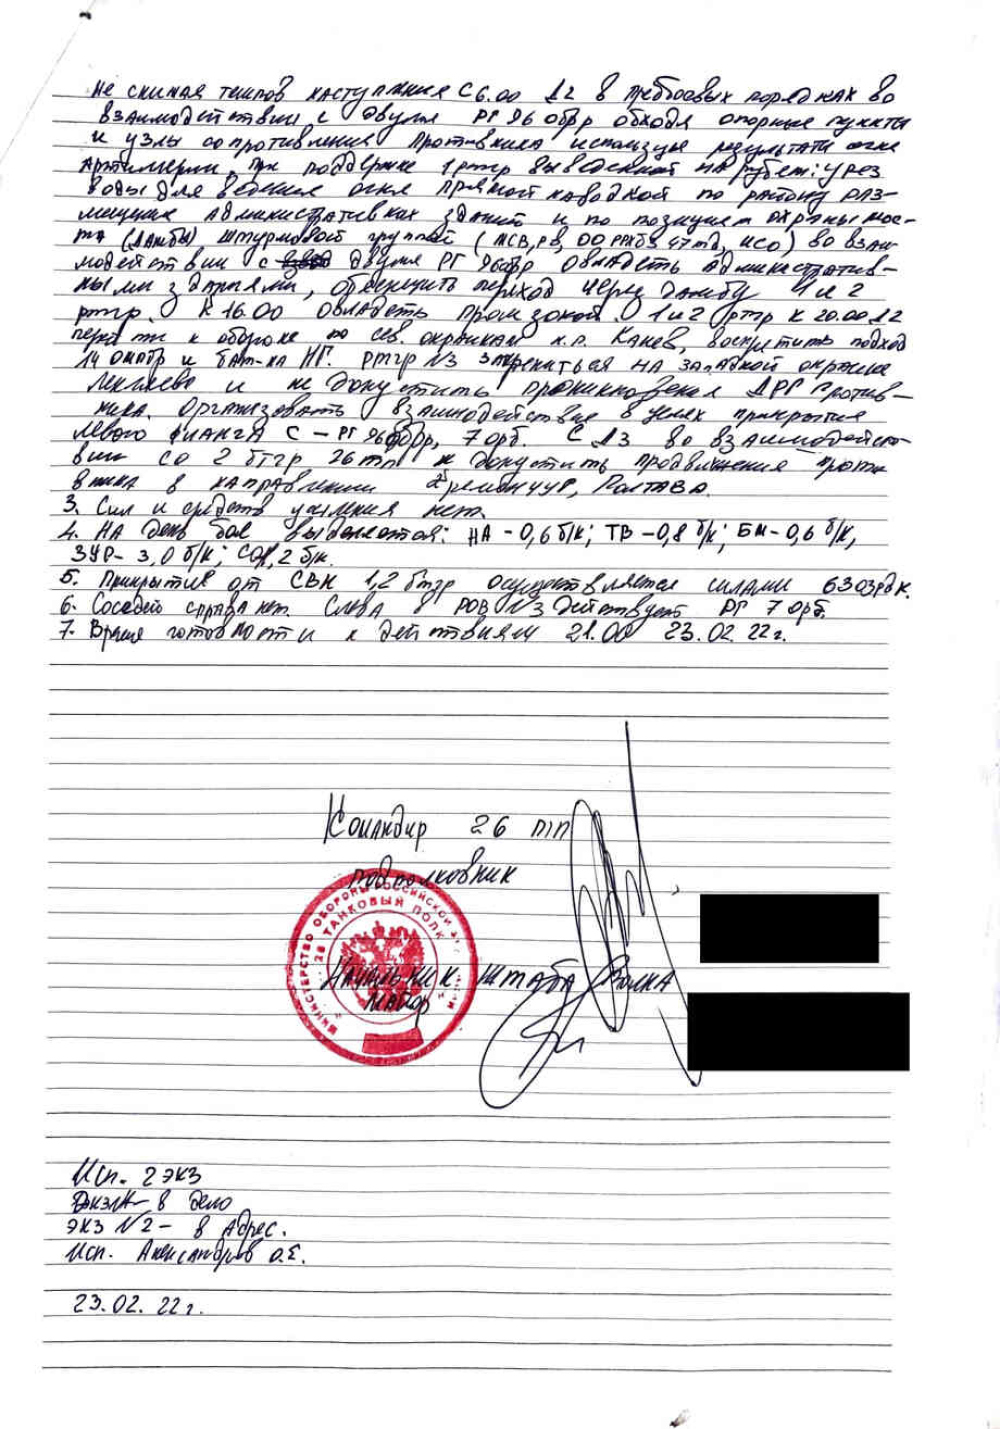 не снижая темпов наступления С 6.00 Д2 в предбоевых порядках во
взаимодействии с двумя РГ 96 обр обходя опорные пункты
и узлы сопротивления противника используя результаты огня
артиллерии, при поддержке 1 ртгр выведенной на рубеж: урез
воды для ведения огня прямой наводкой по району раз-
мещения административных зданий и по позициям охраны мос-
та (дамбы) штурмовой группой (МСВ, РВ, ОО РХБЗ 47 тд, ИСО) во взаи-
модействии с двумя РГ 96 обр овладеть административ-
ными зданиями, обеспечить переход через дамбу 1 и 2
ртгр. К 16.00 овладеть промзоной. 1 и 2 ртгр к 20.00 Д2
перейти к обороне по сев. окраинам н.п. Канев, воспретить подход
и бат-на НГ. ртгр №3 закрепиться на западной окраине
и не допустить проникновения ДРГ против-
ника. Организовать взаимодействие в целях прикрытия
левого фланга с - РГ 96 обр, 7 орб. С Д3 во взаимодейст-
вии со 2 бтгр 26 тп не допустить продвижения проти
вника в направлении Кременчуг, Полтава.
3. Сил и средств усиления нет.
4. На день боя выделяется: НА - 0,6 б/к; ТВ - 0,8 б/к; БМ - 0,6 б/к,
ЗУР - 3,0 б/к; 2 б/к.
5. Прикрытие от СВН 1,2 бтгр осуществляется силами
6. Соседей справа нет. Слева в РОВ №3 действует РГ 7 орб.
7. Время готовности к действиям 21.00 23.02.22г.
Командир 26 тп
подполковник
Начальник штаба полка
майор
МИНИСТЕРСТВО ОБОРОНЫ РОССИЙСКОЙ
26 ТАНКОВЫЙ ПОЛК
Исп. 2 экз
в дело
экз №2 - в адрес.
Исп. Александров О.Е.
23.02.22г.